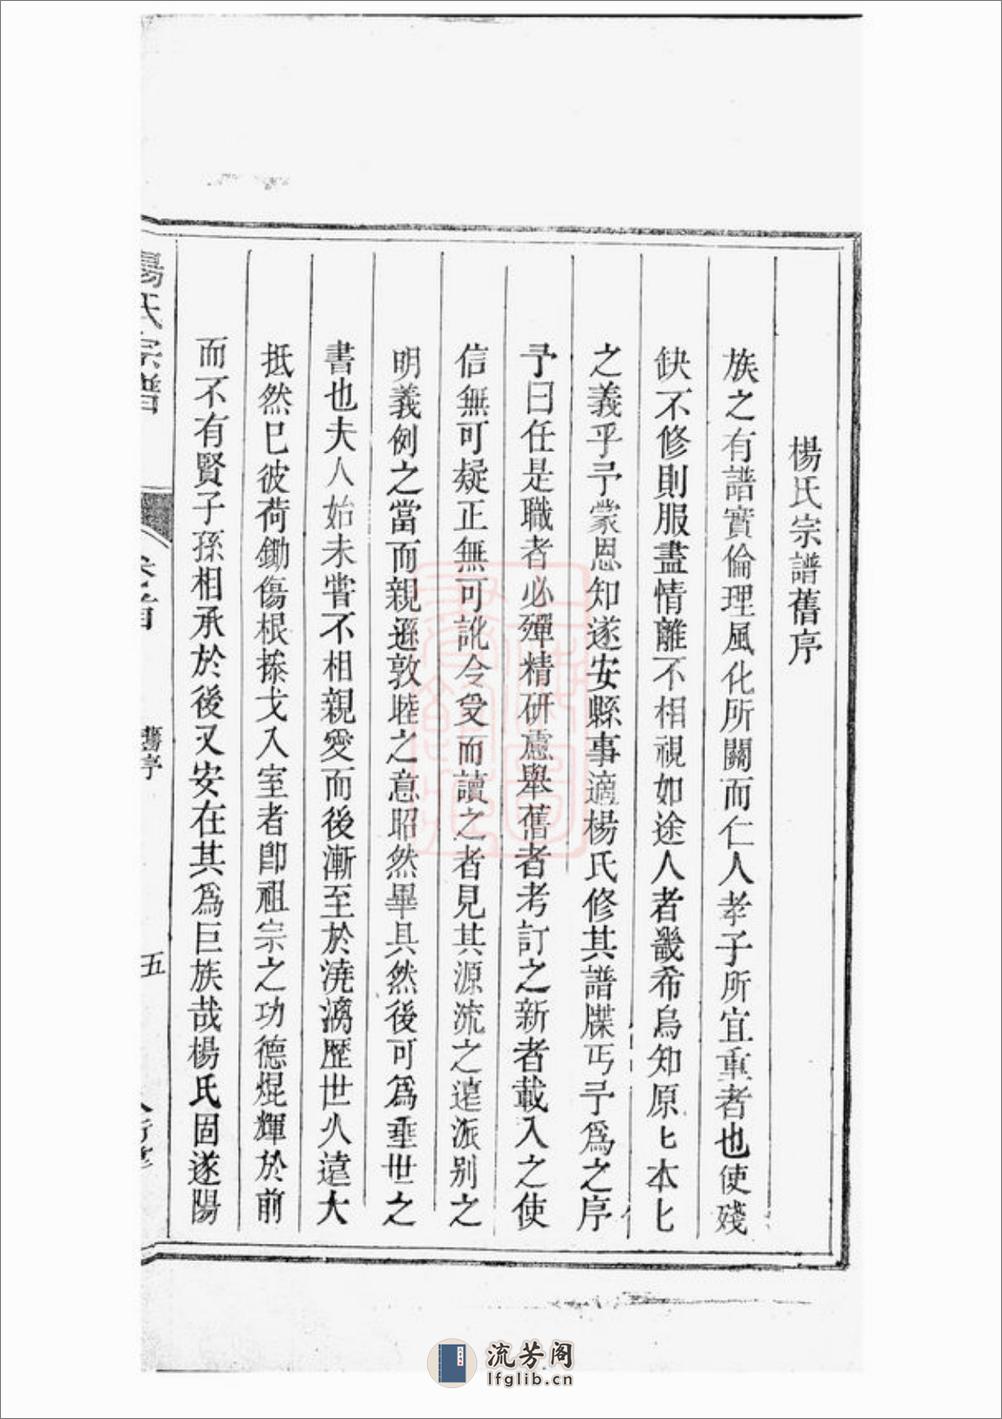 楊氏宗譜舊序
族之有譜實倫理風化所關而仁人孝子所宜重者也使殘
缺不修則服盡情離不相視如途人者幾希烏知原匕本匕
之義乎予蒙恩知遂安縣事適楊氏修其譜牒丐予為之序
予曰任是職者必殫精研慮舉舊者考訂之新者載入之使
信無可疑正無可訛令受而讀之者見其源流之遠派別之
明義例之當而親遜敦睦之意昭然畢具然後可為垂世之
書也夫人始未嘗不相親愛而後漸至於澆漓歷世久遠大
抵然已彼荷鋤傷根操戈入室者卽祖宗之功德焜輝於前
而不有賢子孫相承於後又安在其為巨族哉楊氏固遂陽
楊氏宗譜
卷首
舊序
五
流芳阁
lfglib.cn